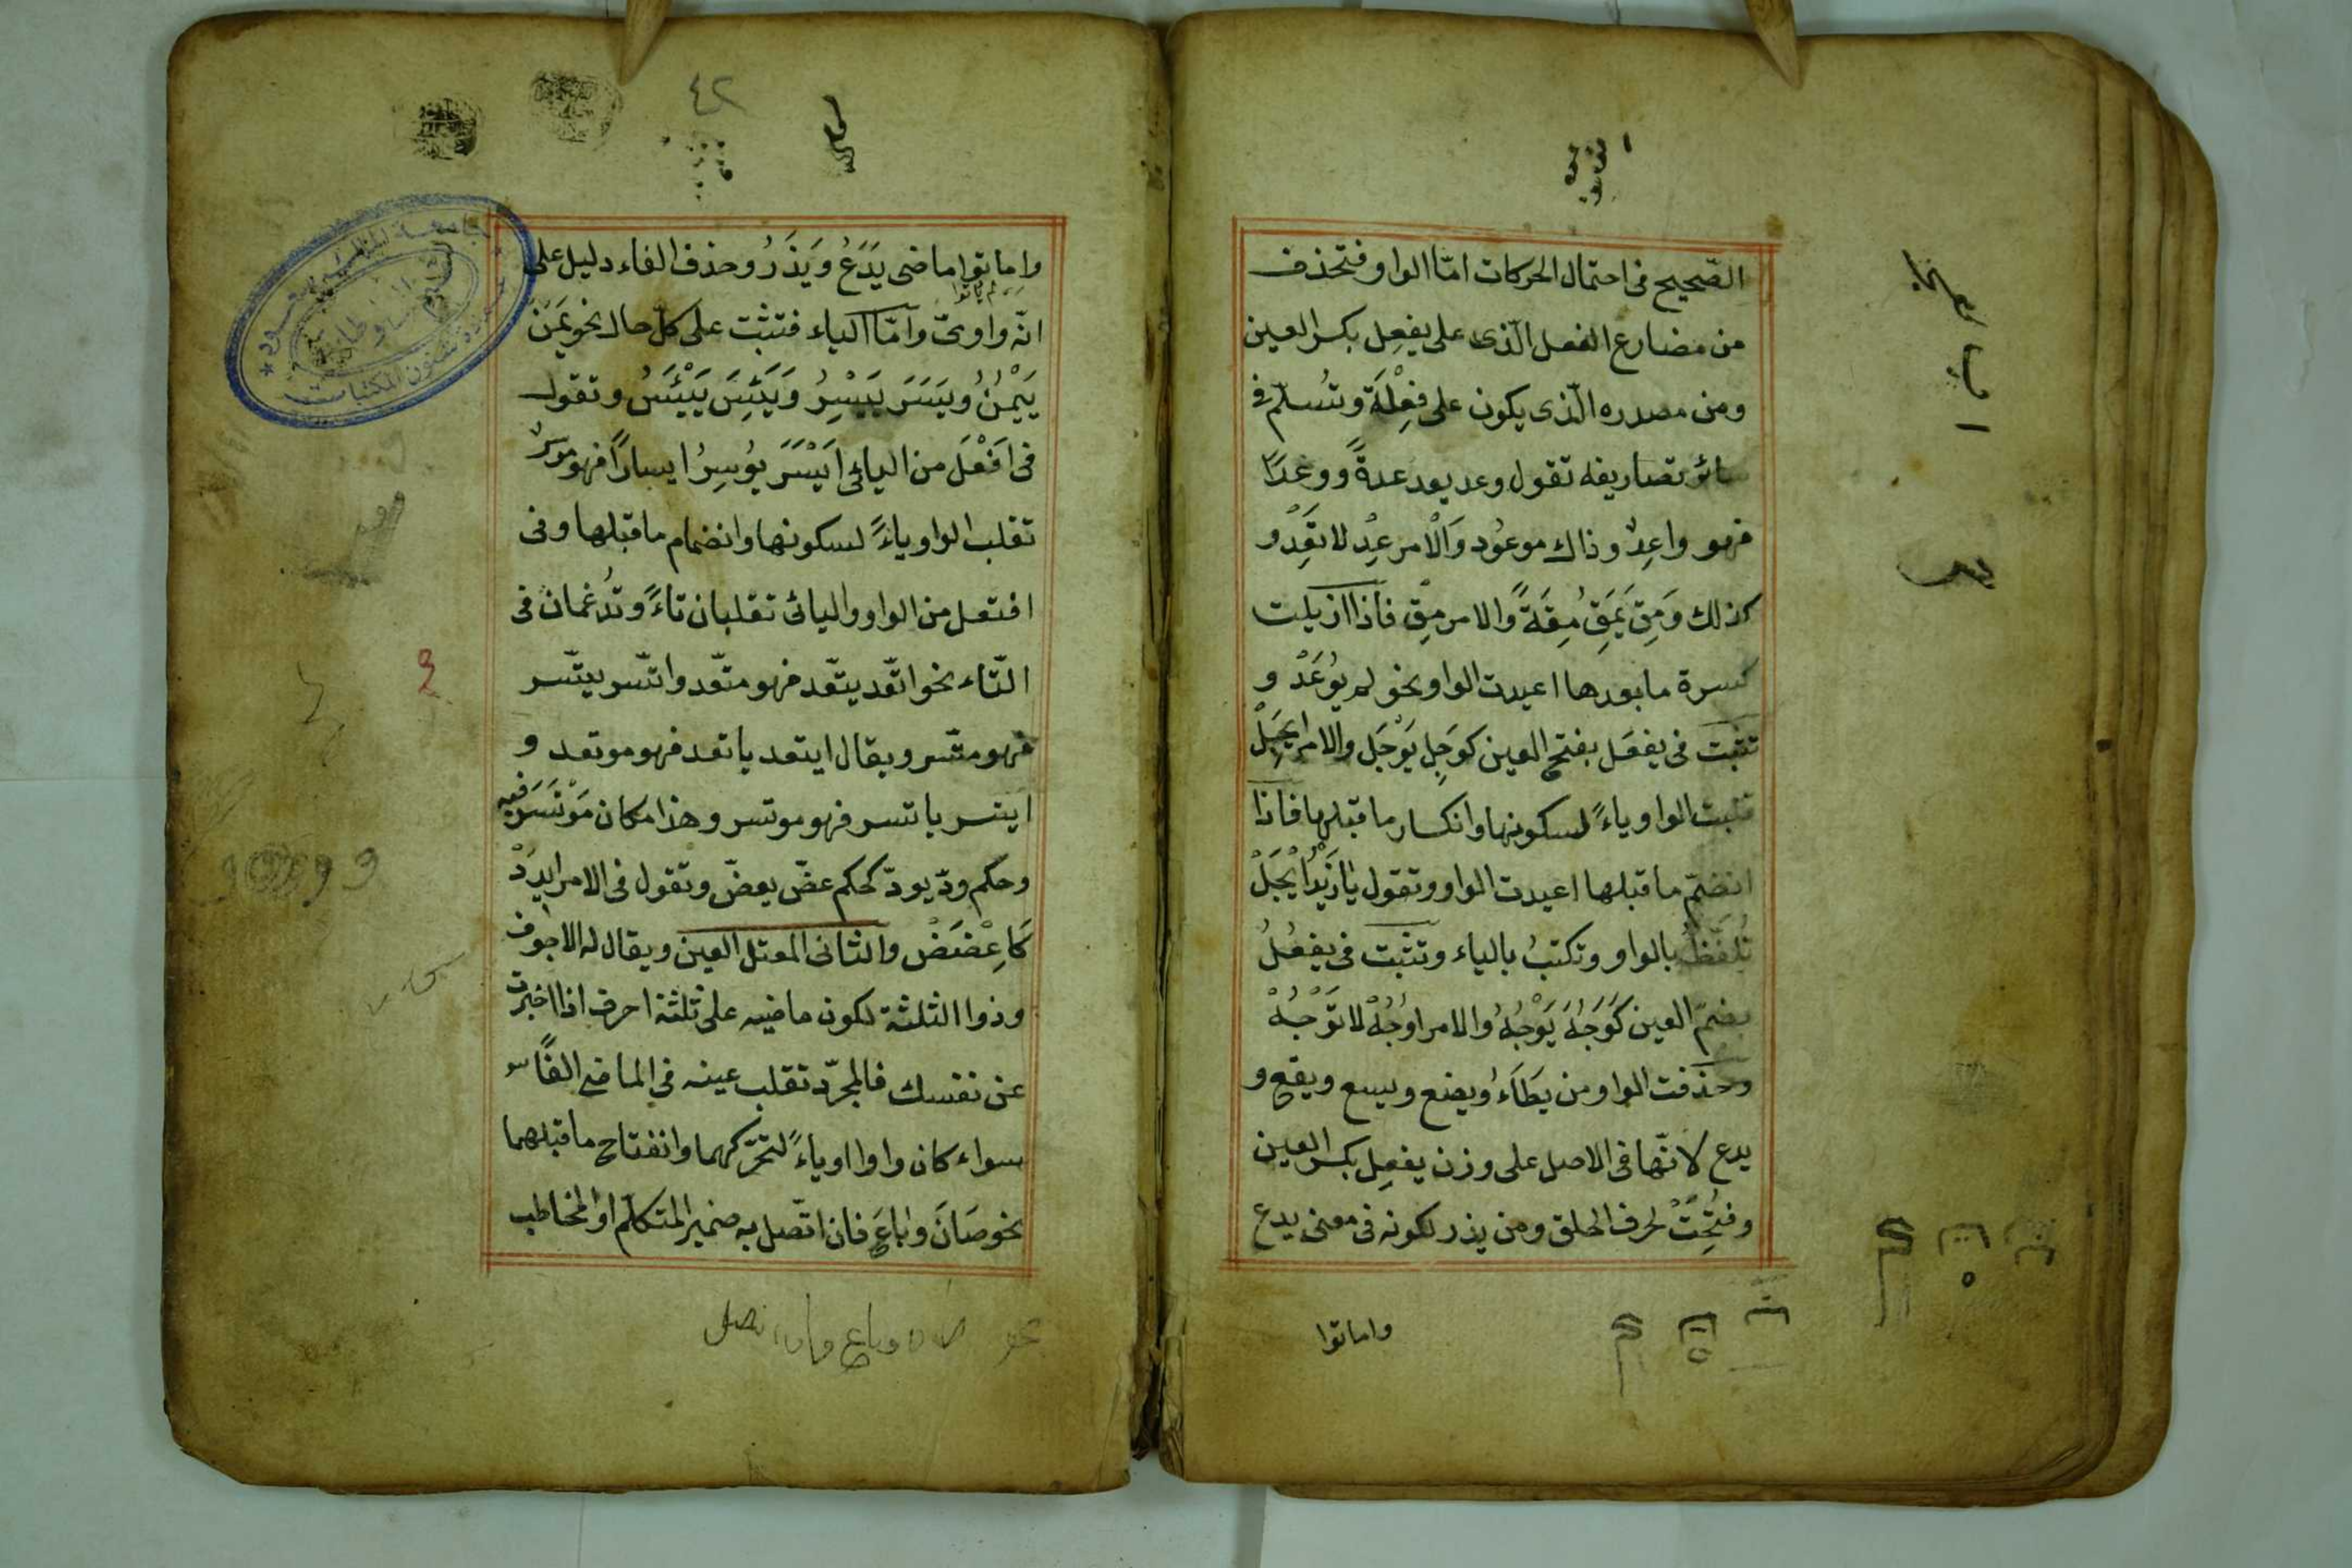 الصّحيح فى احتمال الحركات امّا الواو فتحذف
من مضارع الفعل الّذى على يفعِل بكسر العين
ومن مصدره الّذى يكون على فِعْلَة وتُسلّم فى
سائر تصاريفه تقول وعد يعد عدةً ووعدًا
فهو واعِدٌ وذاك موعُود وَالْامر عِدْ لا تَعِدْ و
كذلك وَمِقَ يَمِقُ مِقَةً والامر مِقْ فاذا ازيلت
كسرة ما بعدها اعيدت الواو نحو لم يُوعَدْ و
تثبت فى يفعَل بفتح العين كوَجِل يَوْجَل والامر ايجَلْ
قلبت الواو ياءً لسكونها وانكسار ما قبلها فاذا
انضمّ ما قبلها اعيدت الواو وتقول يا زَيْدُ ايْجَلْ
تُلفَّظُ بالواو وتكتبُ بالياء وتثبت فى يفعُلُ
بضمّ العين كَوَجُهَ يَوْجُهُ والامر اوُجُهْ لا تَوْجُهْ
وحذفت الواو من يَطَاءُ ويضع ويسع ويقع و
يدع لانّها فى الاصل على وزن يفعِل بكسر العين
وفُتِحَتْ لحرف الحلق ومن يذر لكونه فى معنى يدع
واماتوا
٤٢
واماتوا ماضى يَدَعُ وَيَذَرُ وحذف الفاء دليل على
انّه واوىّ وامّا الياء فتثبت على كلّ حال نحو يَمَنَ
يَيْمُنُ ويَسَرَ يَيْسِرُ وَيَئِسَ يَيْئَسُ وتقول
فى اَفْعَلَ من اليائى اَيْسَرَ يُوسِرُ ايسارًا فهو موسرٌ
تقلب الواو ياءً لسكونها وانضمام ما قبلها وفى
افتعل من الواو واليائى تقلبان تاءً وتُدغمان فى
التّاء نحو اتّعد يتّعد فهو متّعد واتّسر يتّسر
فهو متّسر ويقال ايتعد ياتعد فهو موتعد و
ايتسر ياتسر فهو موتسر وهذا مكان مَوْتَسَر فيه
وحكم ودّ يودّ كحكم عضّ يعضّ وتقول فى الامر ايدَدْ
كَاعِضَضْ والثانى المعتل العين ويقال له الاجوف
وذوا الثلثة لكون ماضيه على ثلثة احرف اذا اخبرت
عن نفسك فالمجرّد تقلب عينه في الماضى الفًا
سواء كان واوا او ياءً لتحرّكهما وانفتاح ما قبلهما
نحو صَانَ وبَاعَ فان اتّصل به ضمير المتكلّم او المخاطب